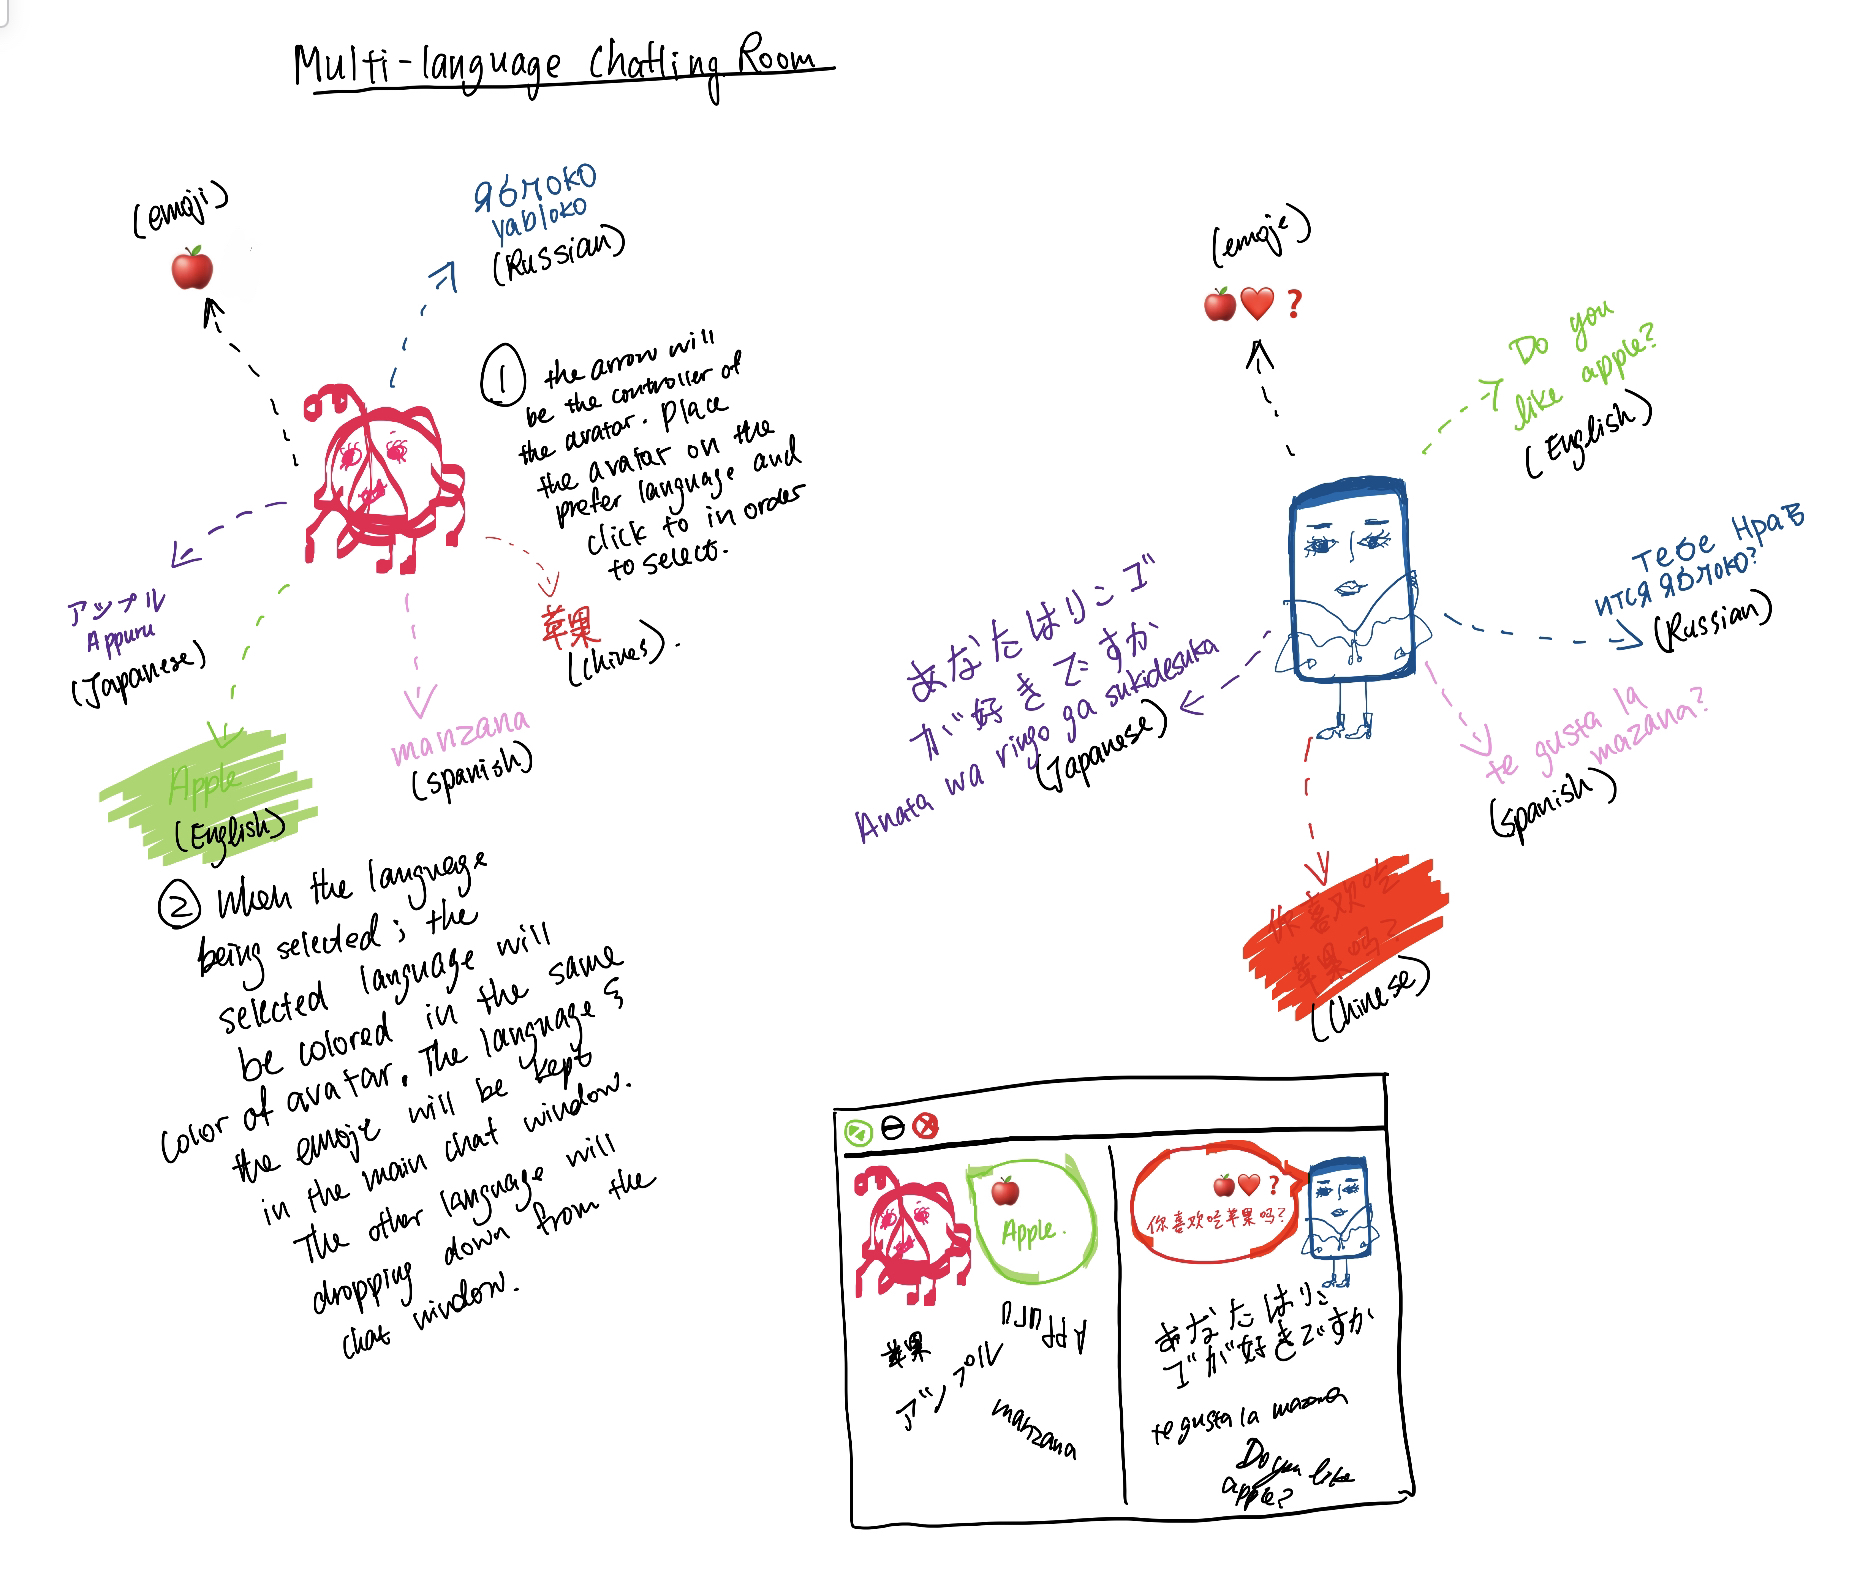 Multi-language Chatting Room
(emoji)
яблоко
yabloko
(Russian)
① the arrow will
be the controller of
the avatar. Place
the avatar on the
prefer language and
click to in order
to select.
アップル
Appuru
(Japanese)
苹果
(Chines).
manzana
(spanish)
Apple
(English)
② When the language
being selected; the
selected language will
be colored in the same
color of avatar. The language &
the emoje will be kept
in the main chat window.
The other language will
dropping down from the
chat window.
(emoje)
?
Do you
like apple?
(English)
тебе нрав
ится яблоко?
(Russian)
te gusta la
mazana?
(spanish)
あなたはリンゴ
が好きですか
Anata wa ringo ga sukidesuka
(Japanese)
你喜欢吃
苹果吗?
(Chinese)
Apple.
?
你喜欢吃苹果吗?
苹果
アップル
Appuru
manzana
あなたはリン
ゴが好きですか
te gusta la mazana
Do you like
apple?